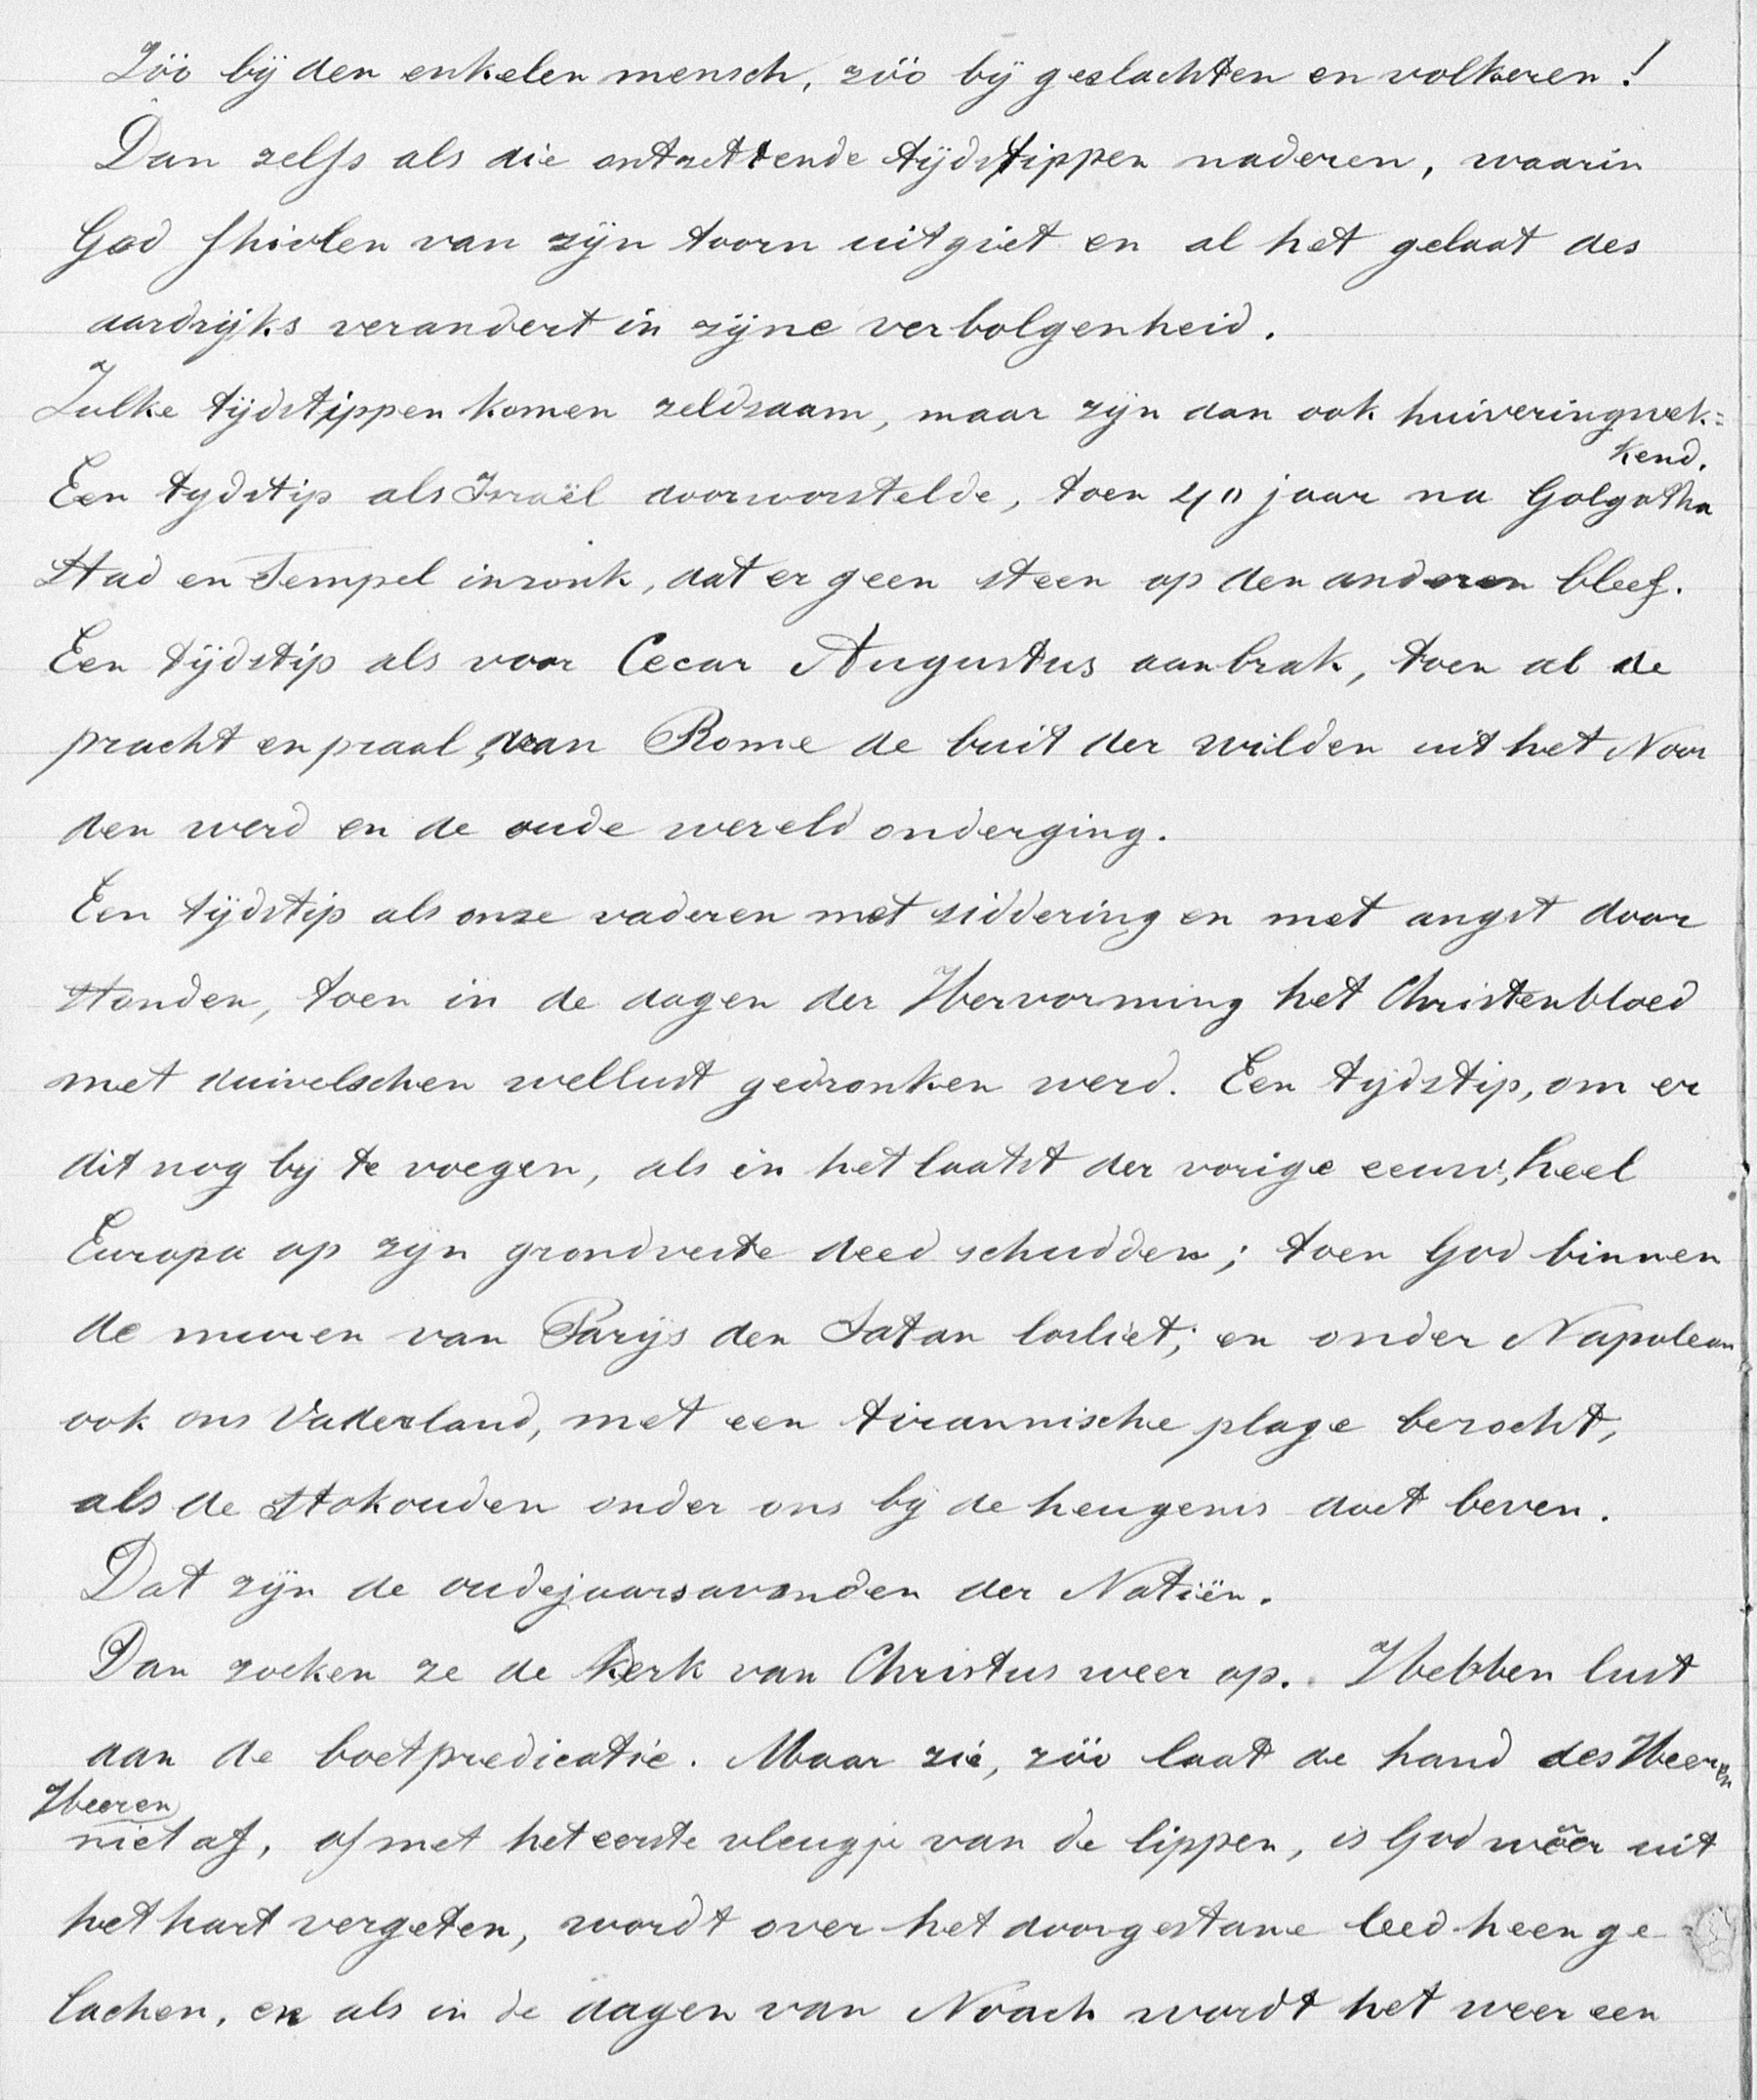 Zóó bij den enkelen mensch, zóó bij geslachten en volkeren!
Dan zelfs als die ontzettende tijdstippen naderen, waarin
God fhiolen van zijn toorn uitgiet en al het gelaat des
aardrijks verandert in zijne verbolgenheid.
Zulke tijdstippen komen zeldzaam, maar zijn dan ook huiveringwek=
kend.
Een tijdstip als Israël doorworstelde, toen 40 jaar na Golgotha
Stad en Tempel inzonk, dat er geen steen op den anderen bleef.
Een tijdstip als voor Cecar Augustus aanbrak, toen al de
pracht en praal, van Rome de buit der wilden uit het Noor
den werd en de oude wereld onderging.
Een tijdstip als onze vaderen met siddering en met angst door
stonden, toen in de dagen der Hervorming het Christenbloed
met duivelschen wellust gedronken werd. Een tijdstip, om er
dit nog bij te voegen, als in het laatst der vorige eeuw, heel
Europa op zijn grondveste deed schudden; toen God binnen
de muren van Parijs den Satan losliet; en onder Napoleon
ook ons Vaderland, met een tirannische plage bezocht,
als de stokouden onder ons bij de heugenis doet beven.
Dat zijn de oudejaarsavonden der Natiën.
Dan zoeken ze de Kerk van Christus weer op. Hebben lust
aan de boetpredicatie. Maar zie, zóó laat de hand des Heeren
Heeren
niet af, of met het eerste vleugje van de lippen, is God wéér uit
het hart vergeten, wordt over het doorgestane leed heen ge
lachen, en als in de dagen van Noach wordt het weer een